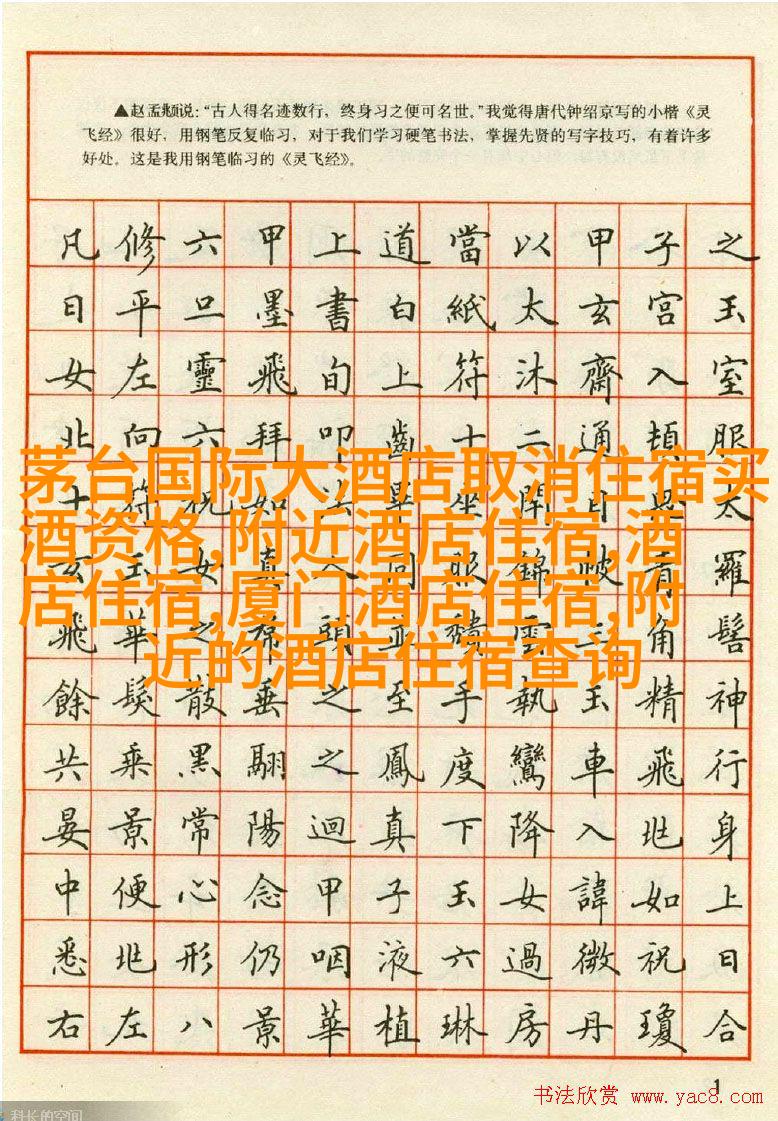 ▲赵孟頫说：“古人得名迹数行，终身习之便可名世。”我觉得唐代钟绍京写的小楷《灵
飞经》很好，用钢笔反复临习，对于我们学习硬笔书法，掌握先贤的写字技巧，有着许多
好处。这是我用钢笔临习的《灵飞经》。
凡修六甲上道當以甲子之
日平旦墨書白紙太玄宮玉
女左靈飛旬上符沐齋入室
北向六拜叩齒十二通頓服
十符祝如法畢坐開目思太
玄玉女真人同服錦帔青羅
飛華之帬頭並頹雲三角髻
餘髮散垂之至手執玉精神
共乘黑翮之鳳度鸞車飛行
晏景常陽迴真下降入兆身
中便心念甲子玉女諱如上
悉兆形仍咽液六過微祝曰
右左八景華植琳房丹瓊合
茅台国际大酒店取消住宿买
酒资格,附近酒店住宿,酒
店住宿,厦门酒店住宿,附
近的酒店住宿查询
1
书法欣赏 www.yac8.com
科长的空间